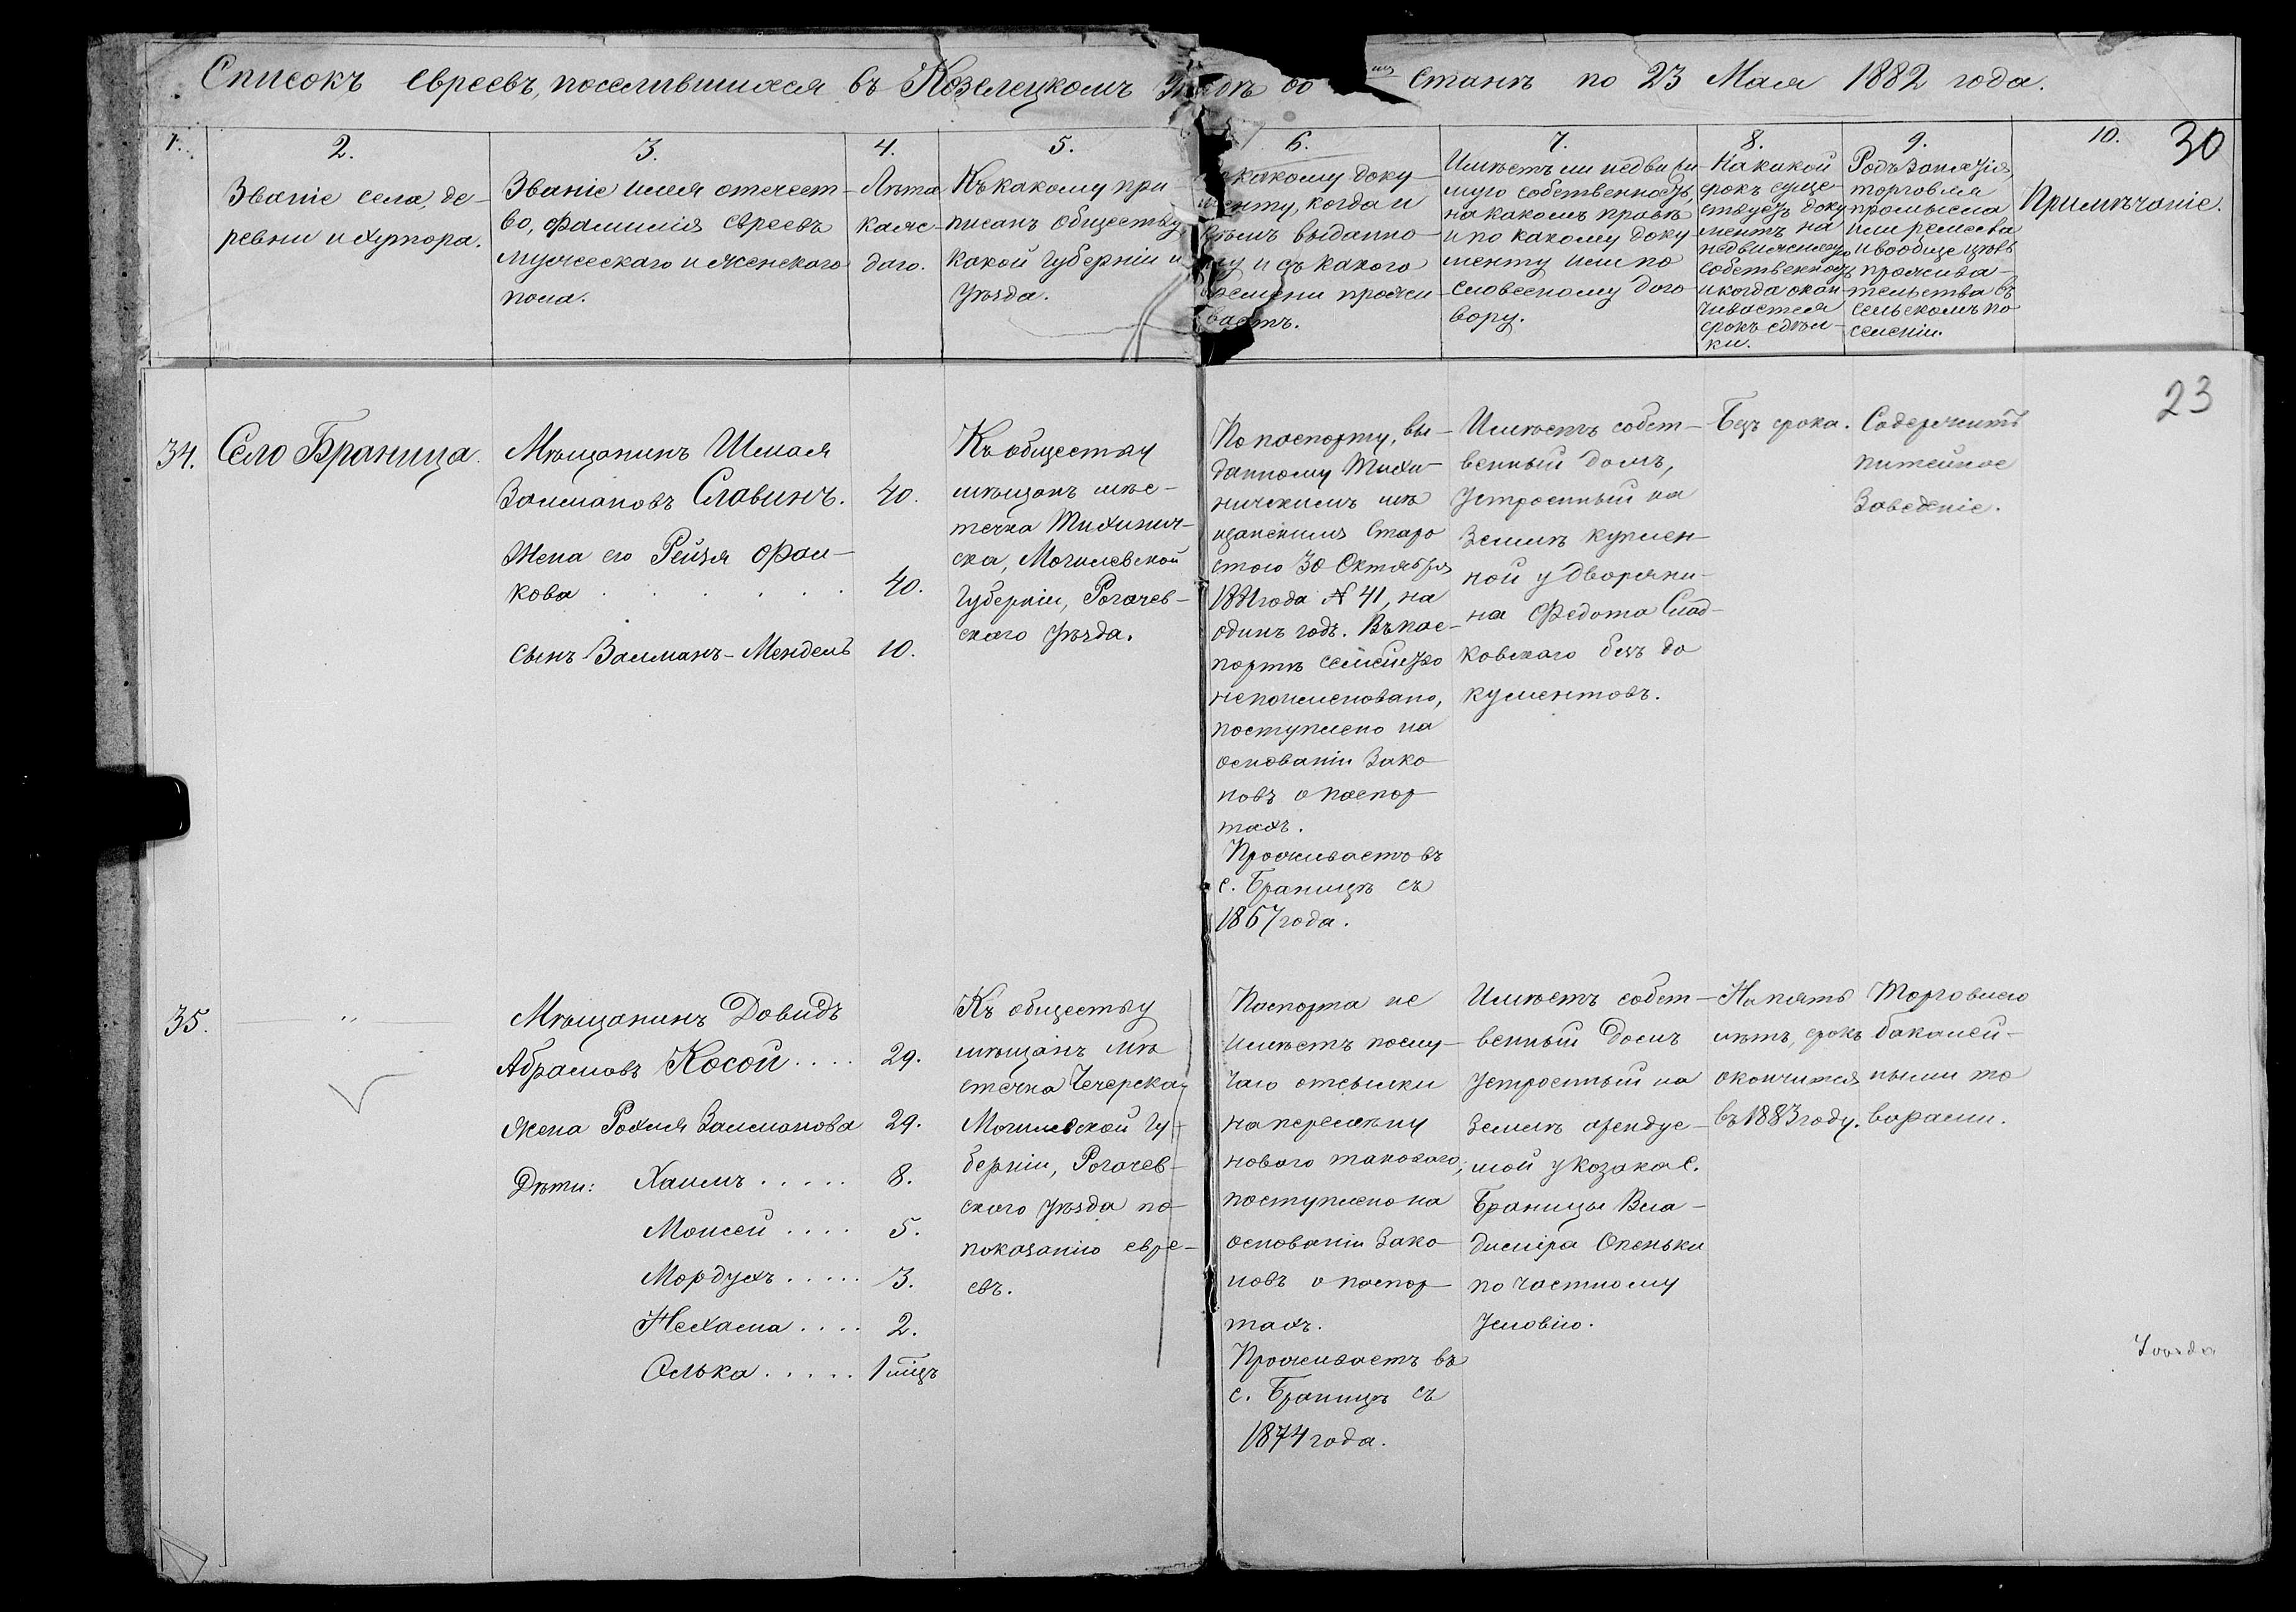 Списокъ евреевъ, поселившихся въ Козелецкомъ Уѣздѣ во Станѣ по 23 Мая 1882 года.
30
1.
2.
Званіе села, де-
ревни и хутора.
3.
Званіе имя отечест-
во, фамилія евреевъ
мужескаго и женскаго
пола.
4.
Лѣта
каж-
даго.
5.
Къ какому при-
писанъ обществу
какой губерніи и
уѣзда.
6.
какому доку-
менту, когда и
кѣмъ выданно-
му и съ какого
времени прожи-
ваетъ.
7.
Имѣетъ ли недвижи-
мую собственность,
на какомъ правѣ
и по какому доку
менту или по
словесному дого-
вору.
8.
На какой
срокъ суще-
ствуетъ доку
ментъ на
недвижимую
собственность
и когда окан-
чивается
срокъ сдѣл-
ки.
9.
Родъ занятія,
торговля
промысла
или ремесла
и вообще цѣль
прожива-
тельства въ
сельскомъ по
селеніи.
10.
Примѣчаніе.
23
34.
Село Браница.
Мѣщанинъ Шмая
Залмановъ Славинъ. 40.
Жена его Рейзя Фай-
кова . . . . . . 40.
сынъ Залманъ-Мендель 10.
Къ обществу
мѣщанъ мѣс-
течка Тихинич-
ска, Могилевской
Губерніи, Рогачев-
скаго уѣзда.
По паспорту, вы-
данному Тихи-
ничскимъ мѣ
щанскимъ старо
стою 30 Октября
1881 года № 41, на
одинъ годъ. Въ пас-
портѣ семейство
непоименовано,
поступлено на
основаніи зако-
новъ о паспор-
тахъ.
Проживаетъ въ
с. Браницѣ съ
1867 года.
Имѣетъ собст-
венный домъ,
устроенный на
землѣ куплен-
ной у дворяни-
на Федота Слад-
ковскаго безъ до
кументовъ.
Безъ срока.
Содержитъ
питейное
заведеніе.
35.
"
Мѣщанинъ Довидъ
Абрамовъ Косой .... 29.
жена Рохля Залманова 29.
Дѣти: Хаимъ ..... 8.
Моисей .... 5.
Мордухъ ..... 3.
Нехама .... 2.
Олька ..... 1 мѣц
Къ обществу
мѣщанъ мѣ
стечка Чечерска,
Могилевской Гу-
берніи, Рогачев-
скаго уѣзда по-
показанію евре-
евъ.
Паспорта не
имѣетъ по слу-
чаю отсылки
на перемѣну
новаго таковаго,
поступлено на
основаніи зако-
новъ о паспор-
тахъ.
Проживаетъ въ
с. Браницѣ съ
1874 года.
Имѣетъ собст-
венный домъ
устроенный на
землѣ арендуе-
мой у козака с.
Браницы Вла-
диміра Опеньки
по частному
условію.
На пять
лѣтъ, срокъ
окончится
въ 1883 году.
Торговлею
бакалей-
ными то
варами.